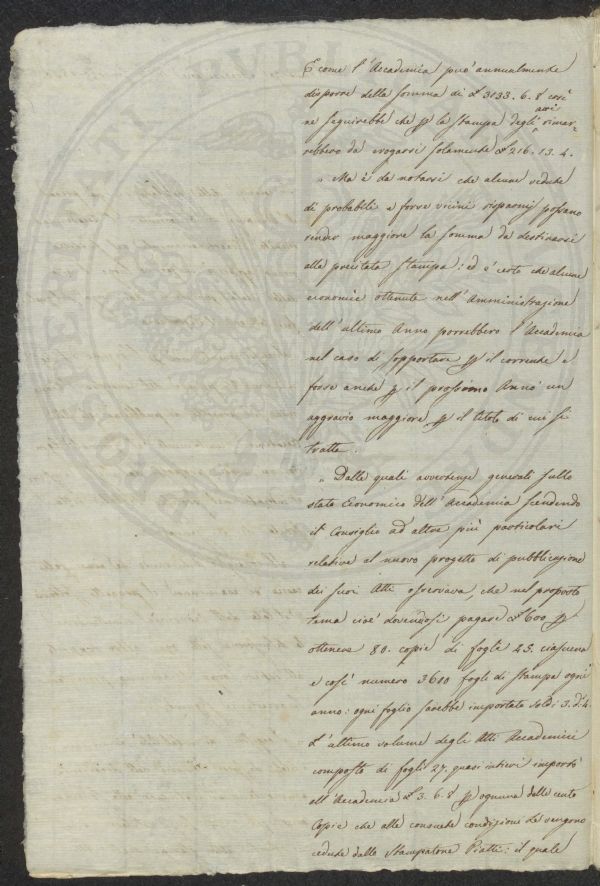 E come l'Accademia può annualmente
disporre della somma di £ 3133. 6. 8 così
ne seguirebbe che p la stampa degli atti rimar=
rebbero da erogarsi solamente £ 216. 13. 4.
„ Ma è da notarsi che alcune vedute
di probabili e forse vicini risparmj possano
render maggiore la somma da destinarsi
alla precitata stampa: ed è certo che alcune
economie ottenute nell'Amministrazione
dell'ultimo Anno porrebbero l'Accademia
nel caso di sopportare p il corrente e
forse anche p il prossimo Anno un
aggravio maggiore p il titolo di cui si
tratta.
„ Dalle quali avvertenze generali sullo
stato Economico dell'Accademia scendendo
il Consiglio ad altre più particolari
relative al nuovo progetto di pubblicazione
dei suoi Atti osservava, che nel proposto
tema cioè dovendosi pagare £ 600 p
ottenere 80. copie di fogli 25. ciascuna
e così numero 3600 fogli di stampa ogni
anno: ogni foglio sarebbe importato soldi 3. d. 4.
L'ultimo volume degli Atti Accademici
composto di fogli 27. quasi intieri importò
all'Accademia £ 3. 6. 8 p ognuna delle cento
Copie che alle consuete condizioni le vengono
cedute dallo Stampatore Piatti: il quale